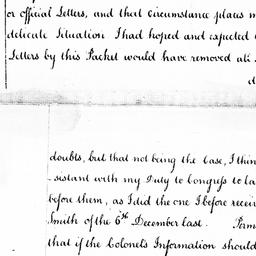 or official Letters, and that circumstance places m
delicate Situation I had hoped and expected
Letters by this Packet would have removed all
d
doubts, but that not being the Case, I thin
sistant with my Duty to Congress to la
before them, as I did the one I before recei
Smith of the 6th December last. Perm
that if the Colonel's Information should